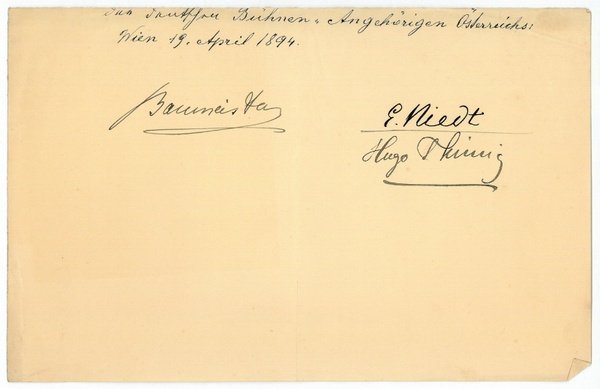 der deutschen Bühnen-Angehörigen Österreichs:
Wien 19. April 1894.
Baumeister
E. Niedt
Hugo Thimig